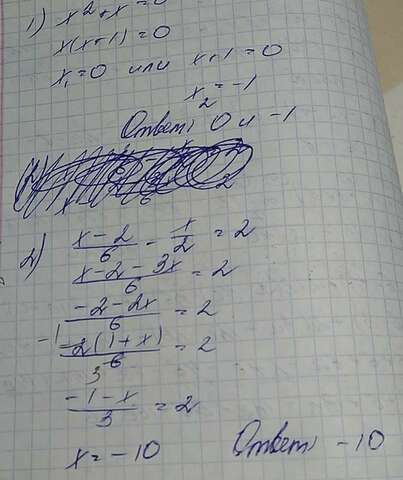 1) x² + x = 0
x(x+1) = 0
x₁ = 0 или x+1 = 0
x₂ = -1
Ответ: 0 и -1
2) (x-2)/6 - x/2 = 2
(x-2-3x)/6 = 2
(-2-2x)/6 = 2
-1 -2(1+x)/6 3 = 2
(-1-x)/3 = 2
x = -10 Ответ: -10